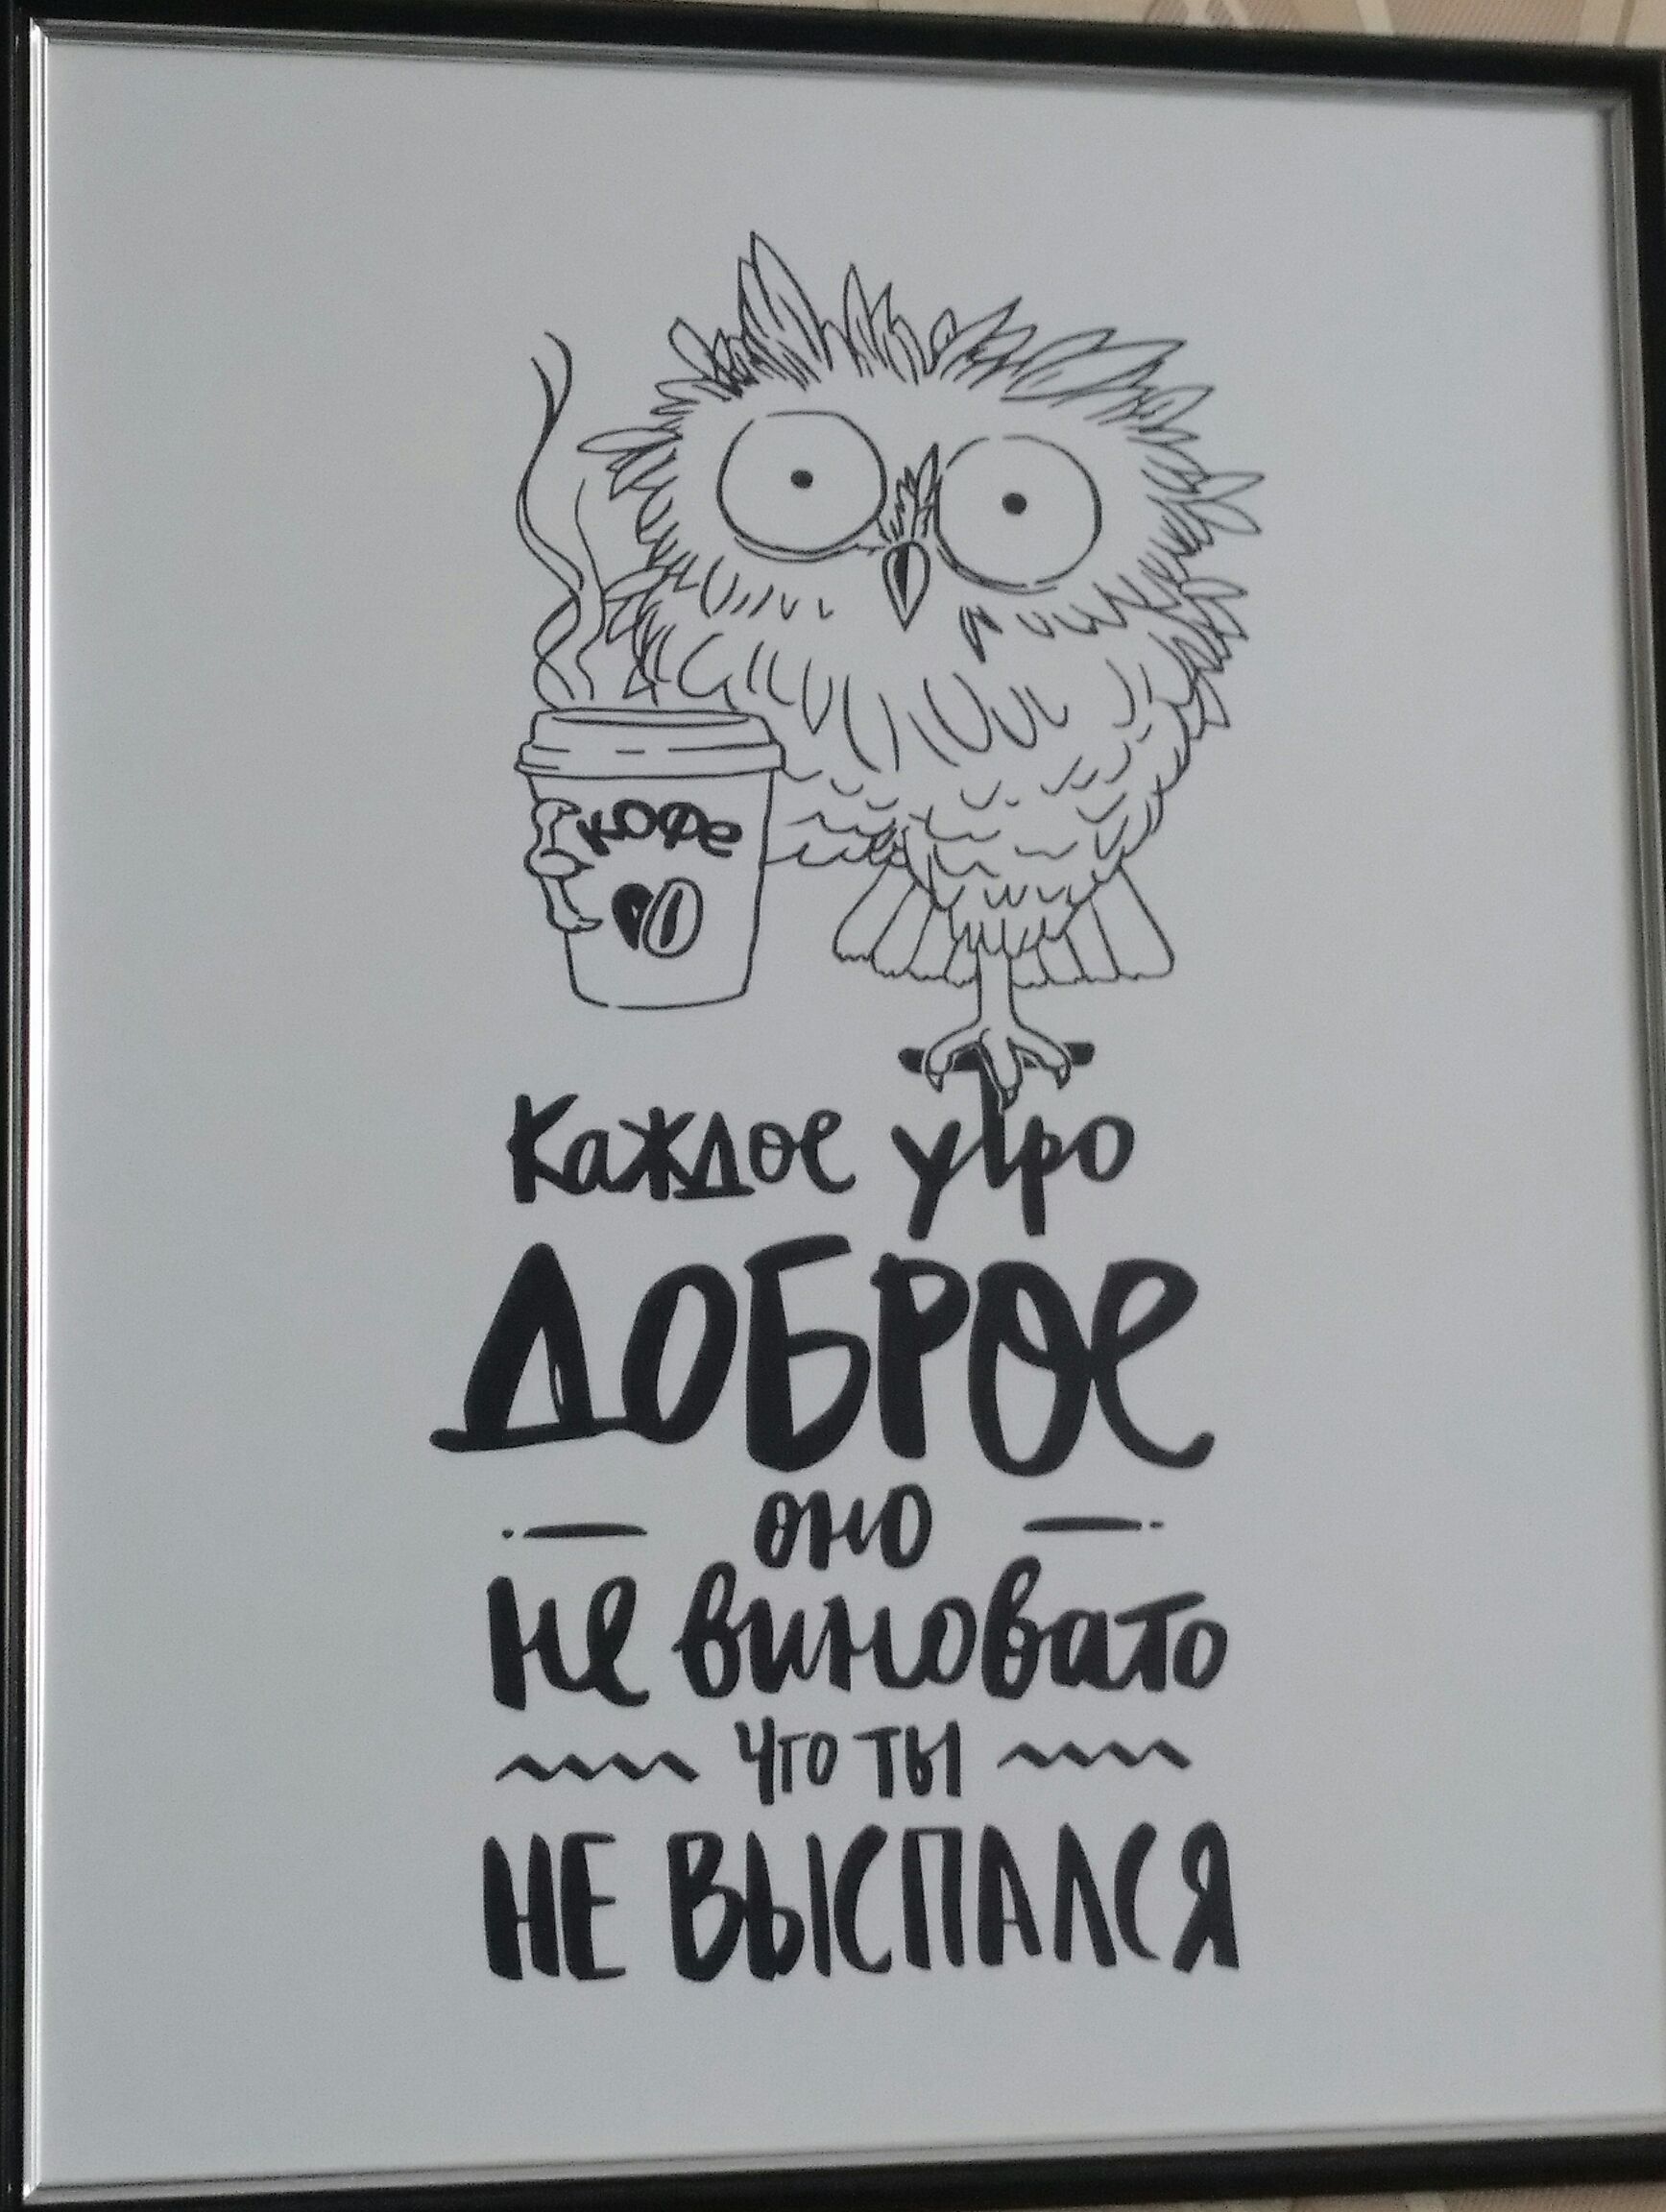 кофе
Каждое утро
ДОБРОЕ
оно
не виновато
что ты
НЕ ВЫСПАЛСЯ